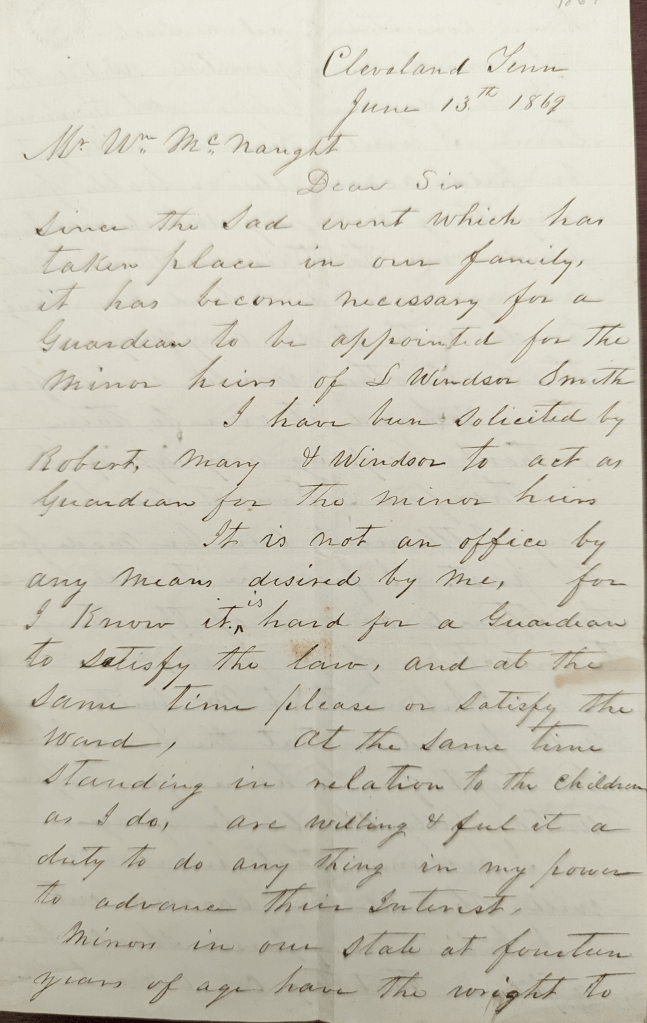 Cleveland Tenn
June 13th 1869
Mr Wm McNaught
Dear Sir
since the sad event which has
taken place in our family,
it has become necessary for a
Guardian to be appointed for the
Minor heirs of L Windsor Smith
I have been solicited by
Robert, Mary & Windsor to act as
Guardian for the minor heirs
It is not an office by
any means desired by me, for
I Know it is hard for a Guardian
to satisfy the law, and at the
same time please or satisfy the
ward, At the same time
standing in relation to the children
as I do, are willing & feel it a
duty to do any thing in my power
to advance their Interest,
Minors in our state at fourteen
years of age have the wright to